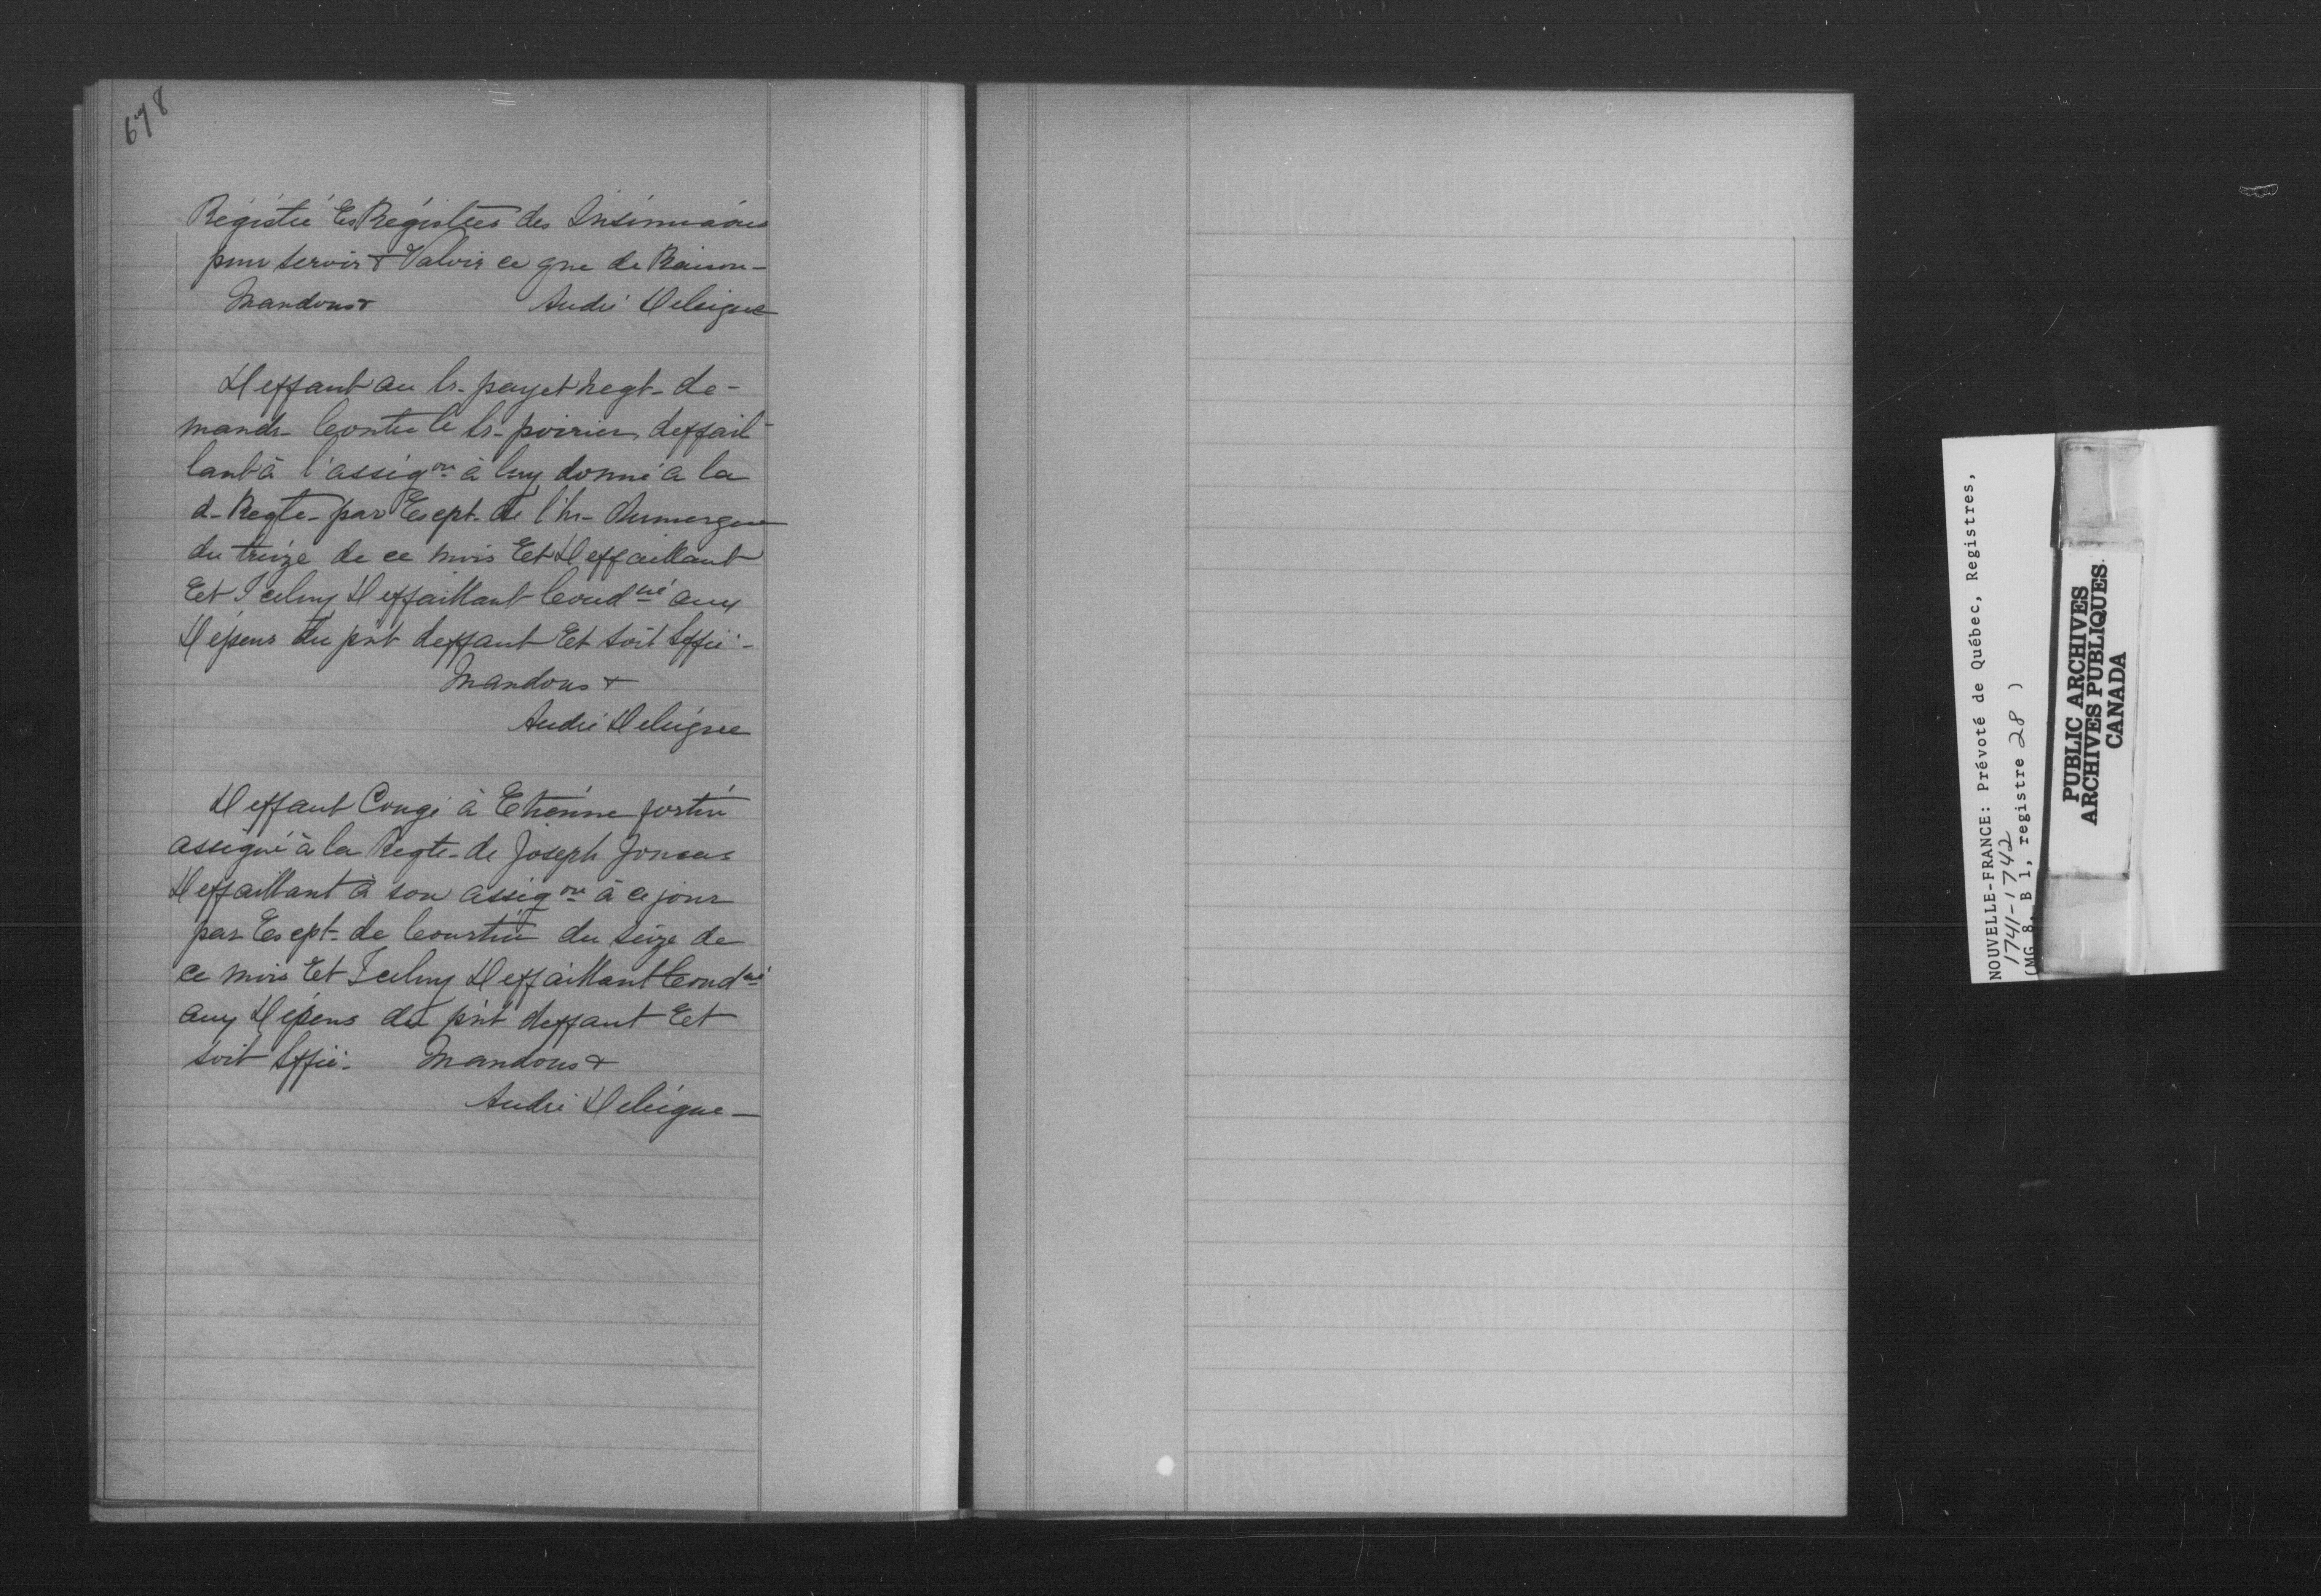 678
Régistré Es Régistres des Insinuaōns
pour servir & Valoir ce que de Raison-
Mandons& André Deleigne
Deffaut au Sr- payet negt- de-
mandr- Contre le Sr- poirier deffail-
lant à l'assig.on à luy donné a la
d- Reqte- par Escpt- de l'hr- dumergue
du treize de ce mois Et Deffaillant
Et Iceluy Deffaillant Cond.né aux
Dépens du pnt deffaut Et soit Sffié-
Mandons &
André Deleigne
Deffaut Congé à Etienne fortin
assigné à la Reqte- de Joseph
Deffaillant à son assig.on à ce jour
par Escpt- de Courtin du seize de
ce mois Et Iceluy Deffaillant Cond.né
aux Dépens du pn't deffaut Et
soit Sffié- Mandons &
André Deleigne-
NOUVELLE-FRANCE: Prévoté de Québec, Registres,
1741-1742
(MG 8, B 1, registre 28 )
PUBLIC ARCHIVES
ARCHIVES PUBLIQUES
CANADA